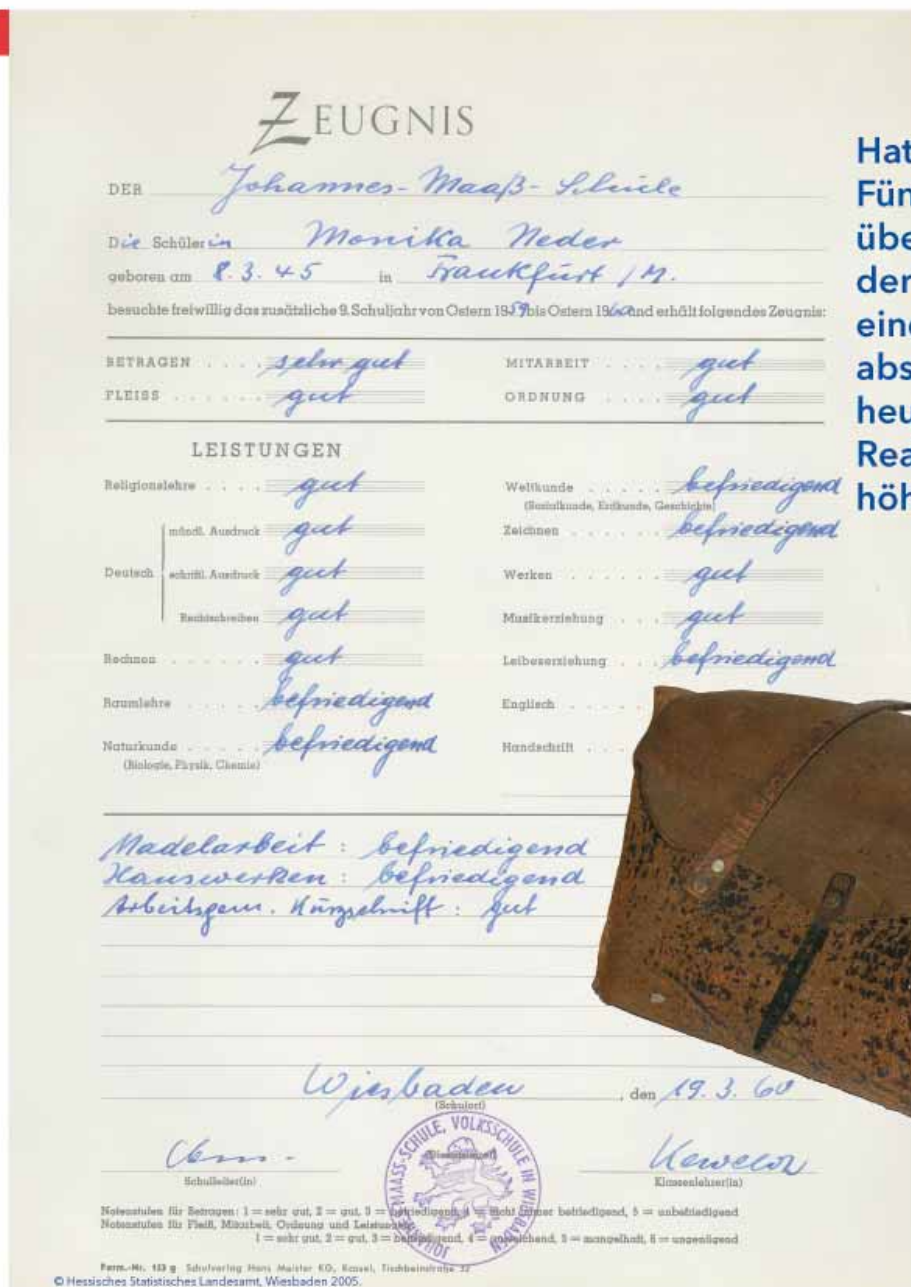 ZEUGNIS
DER Johannes-Maaß-Schule
Die Schülerin Monika Neder
geboren am 8.3.45 in Frankfurt/M.
besuchte freiwillig das zusätzliche 9. Schuljahr von Ostern 1959 bis Ostern 1960 und erhält folgendes Zeugnis:
BETRAGEN . . . . sehr gut
FLEISS . . . . . . gut
MITARBEIT . . . . gut
ORDNUNG . . . . gut
LEISTUNGEN
Religionslehre . . . . gut
Deutsch
mündl. Ausdruck gut
schriftl. Ausdruck gut
Rechtschreiben gut
Rechnen . . . . . . gut
Raumlehre . . . . . befriedigend
Naturkunde . . . . . befriedigend
(Biologie, Physik, Chemie)
Weltkunde . . . . . befriedigend
(Sozialkunde, Erdkunde, Geschichte)
Zeichnen . . . . . . befriedigend
Werken . . . . . . gut
Musikerziehung . . . gut
Leibeserziehung . . . befriedigend
Englisch . . . .
Handschrift . . .
Nadelarbeit : befriedigend
Hauswerken : befriedigend
Arbeitsgem. Kurzschrift : gut
Wiesbaden , den 19.3.60
(Schulort)
Schulleiter(in)
Klassenlehrer(in)
JOHANNES-MAASS-SCHULE, VOLKSSCHULE IN WIESBADEN
Notenstufen für Betragen: 1 = sehr gut, 2 = gut, 3 = befriedigend, 4 = nicht immer befriedigend, 5 = unbefriedigend
Notenstufen für Fleiß, Mitarbeit, Ordnung und Leistungen:
1 = sehr gut, 2 = gut, 3 = befriedigend, 4 = ausreichend, 5 = mangelhaft, 6 = ungenügend
Form.-Nr. 153 g Schulverlag Hans Meister KG, Kassel, Tischbeinstraße 32
© Hessisches Statistisches Landesamt, Wiesbaden 2005.
Hat
Fün
übe
der
eine
abs
heu
Rea
höh